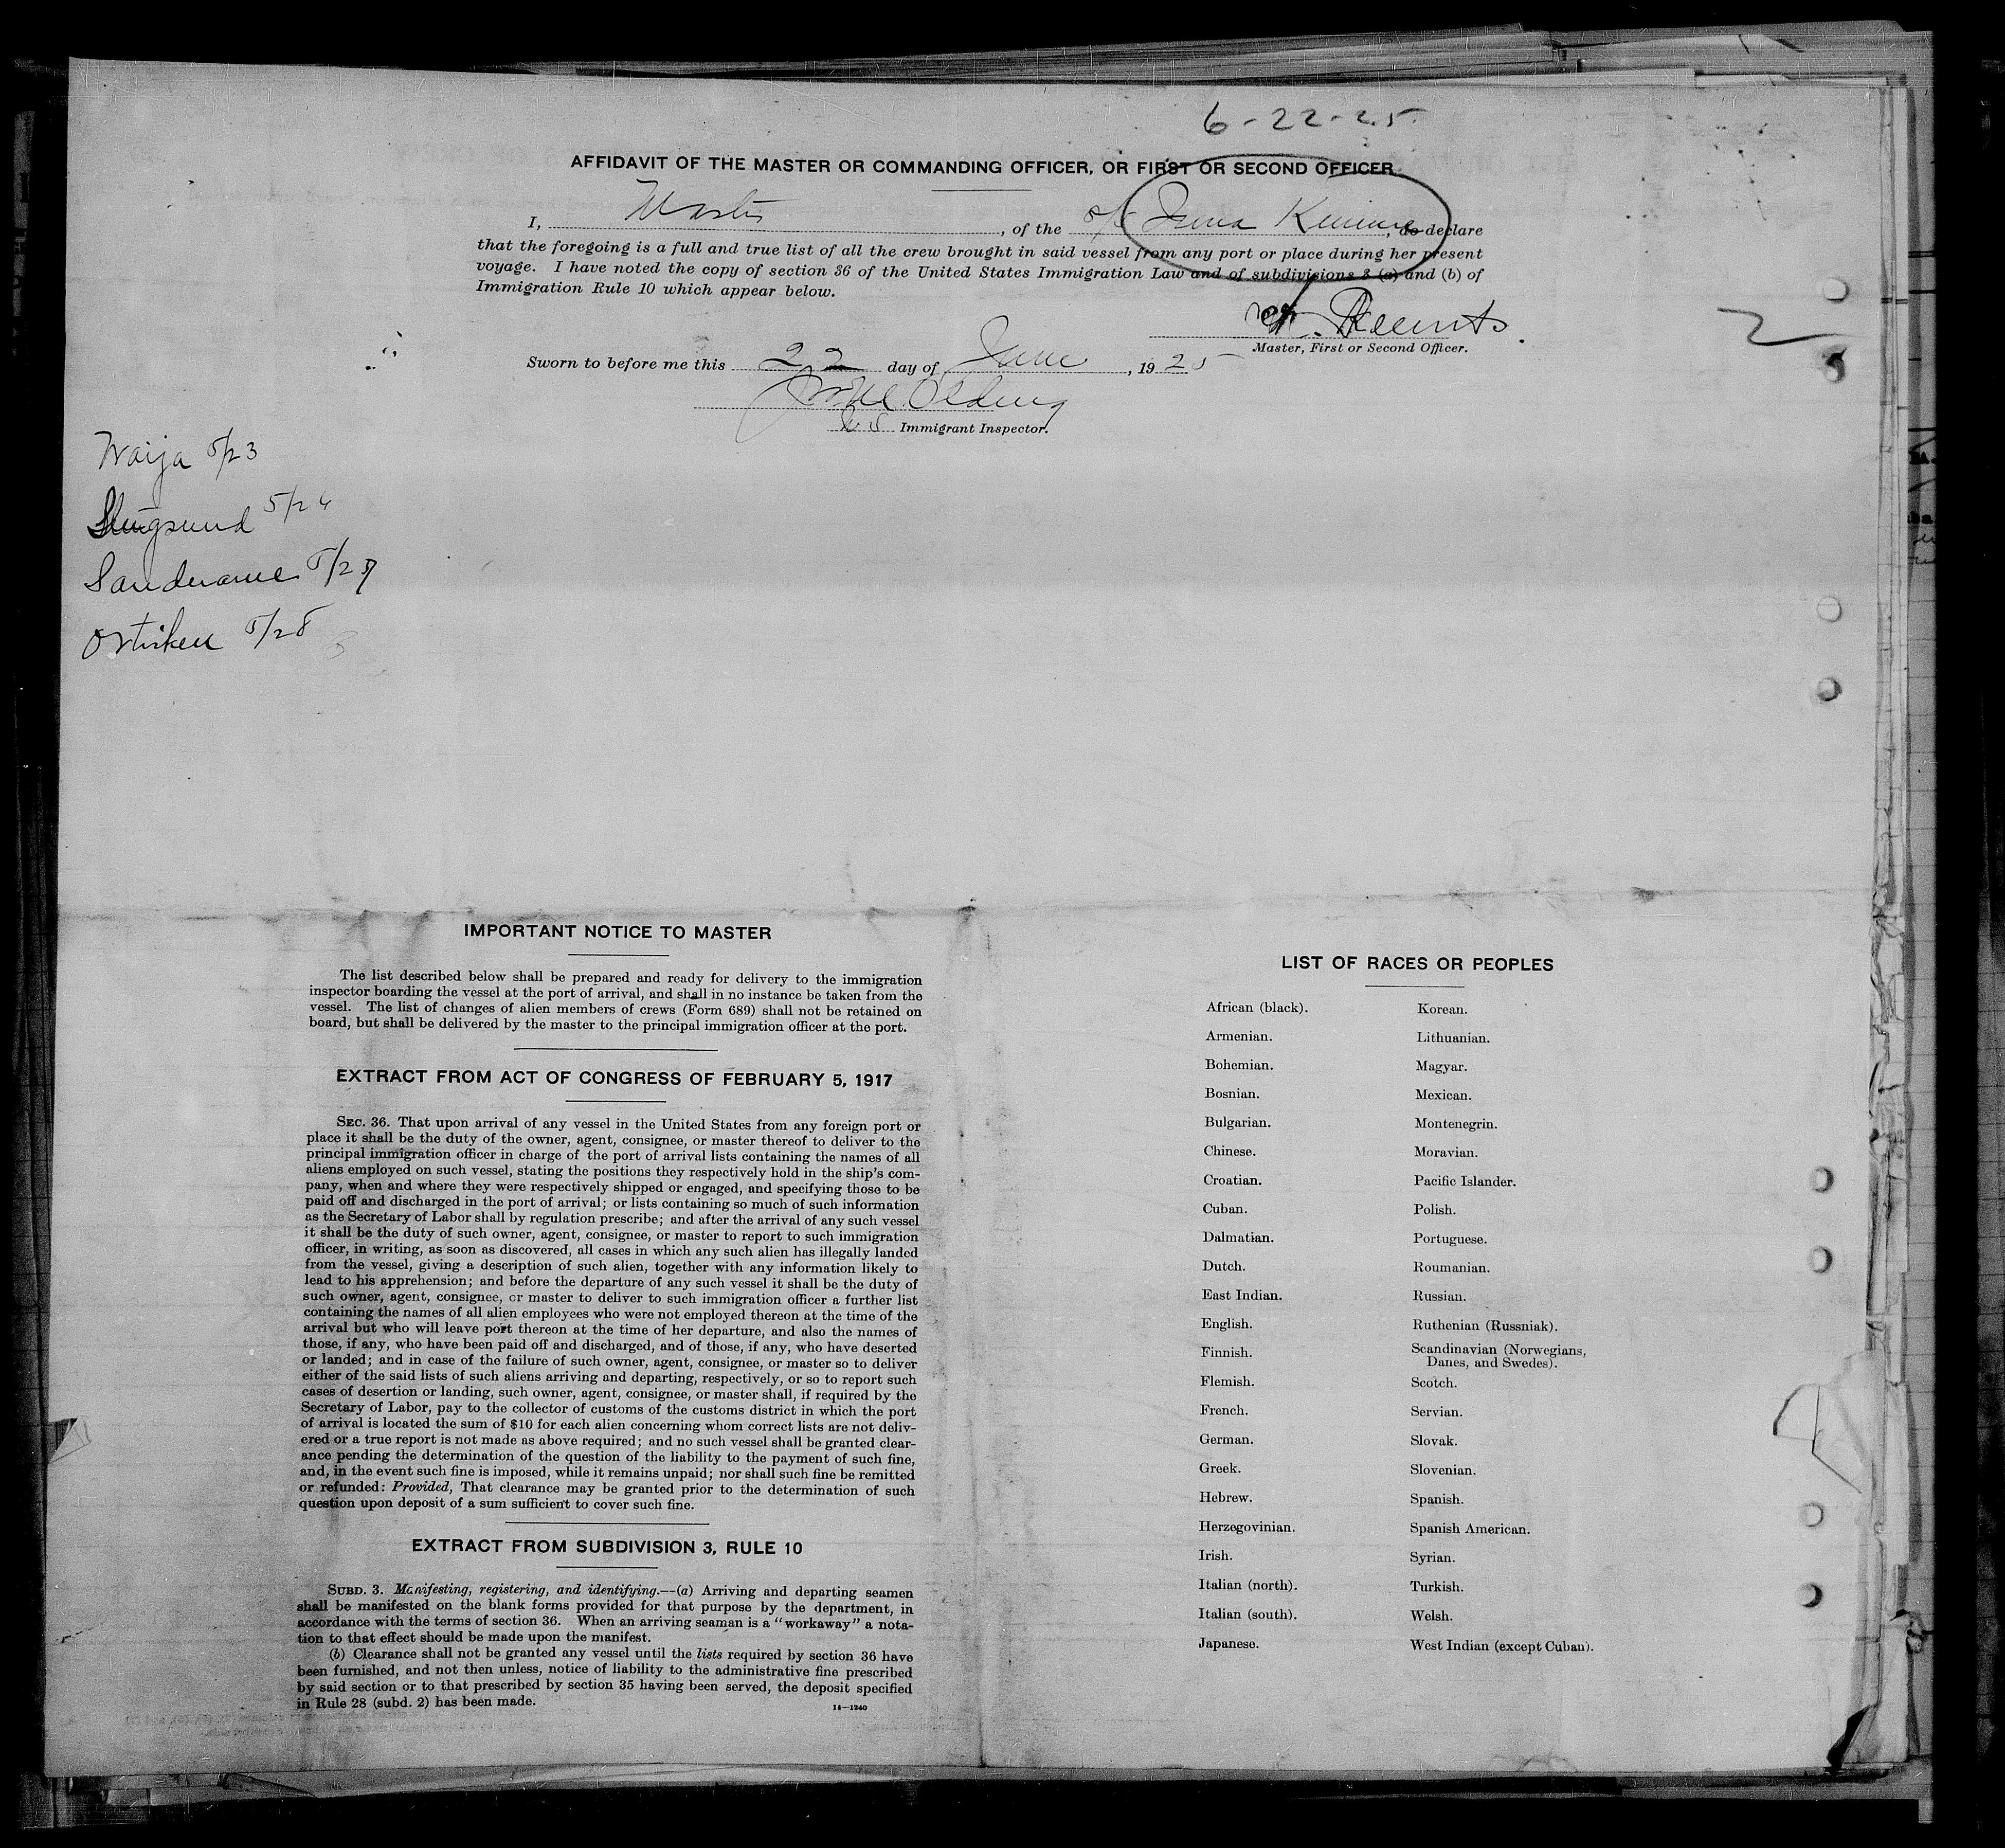 6-22-25
AFFIDAVIT OF THE MASTER OR COMMANDING OFFICER, OR FIRST OR SECOND OFFICER.
I, Master, of the s/s, do declare
that the foregoing is a full and true list of all the crew brought in said vessel from any port or place during her present
voyage. I have noted the copy of section 36 of the United States Immigration Law and of subdivisions 3 (a) and (b) of
Immigration Rule 10 which appear below.
Master, First or Second Officer.
Sworn to before me this 22 day of June, 1925
Immigrant Inspector.
5/23
5/24
5/27
5/28
IMPORTANT NOTICE TO MASTER
The list described below shall be prepared and ready for delivery to the immigration
inspector boarding the vessel at the port of arrival, and shall in no instance be taken from the
vessel. The list of changes of alien members of crews (Form 689) shall not be retained on
board, but shall be delivered by the master to the principal immigration officer at the port.
EXTRACT FROM ACT OF CONGRESS OF FEBRUARY 5, 1917
SEC. 36. That upon arrival of any vessel in the United States from any foreign port or
place it shall be the duty of the owner, agent, consignee, or master thereof to deliver to the
principal immigration officer in charge of the port of arrival lists containing the names of all
aliens employed on such vessel, stating the positions they respectively hold in the ship's com-
pany, when and where they were respectively shipped or engaged, and specifying those to be
paid off and discharged in the port of arrival; or lists containing so much of such information
as the Secretary of Labor shall by regulation prescribe; and after the arrival of any such vessel
it shall be the duty of such owner, agent, consignee, or master to report to such immigration
officer, in writing, as soon as discovered, all cases in which any such alien has illegally landed
from the vessel, giving a description of such alien, together with any information likely to
lead to his apprehension; and before the departure of any such vessel it shall be the duty of
such owner, agent, consignee, or master to deliver to such immigration officer a further list
containing the names of all alien employees who were not employed thereon at the time of the
arrival but who will leave port thereon at the time of her departure, and also the names of
those, if any, who have been paid off and discharged, and of those, if any, who have deserted
or landed; and in case of the failure of such owner, agent, consignee, or master so to deliver
either of the said lists of such aliens arriving and departing, respectively, or so to report such
cases of desertion or landing, such owner, agent, consignee, or master shall, if required by the
Secretary of Labor, pay to the collector of customs of the customs district in which the port
of arrival is located the sum of $10 for each alien concerning whom correct lists are not deliv-
ered or a true report is not made as above required; and no such vessel shall be granted clear-
ance pending the determination of the question of the liability to the payment of such fine,
and, in the event such fine is imposed, while it remains unpaid; nor shall such fine be remitted
or refunded: Provided, That clearance may be granted prior to the determination of such
question upon deposit of a sum sufficient to cover such fine.
EXTRACT FROM SUBDIVISION 3, RULE 10
SUBD. 3. Manifesting, registering, and identifying.—(a) Arriving and departing seamen
shall be manifested on the blank forms provided for that purpose by the department, in
accordance with the terms of section 36. When an arriving seaman is a "workaway" a nota-
tion to that effect should be made upon the manifest.
(b) Clearance shall not be granted any vessel until the lists required by section 36 have
been furnished, and not then unless, notice of liability to the administrative fine prescribed
by said section or to that prescribed by section 35 having been served, the deposit specified
in Rule 28 (subd. 2) has been made.
14—1240
LIST OF RACES OR PEOPLES
African (black).
Armenian.
Bohemian.
Bosnian.
Bulgarian.
Chinese.
Croatian.
Cuban.
Dalmatian.
Dutch.
East Indian.
English.
Finnish.
Flemish.
French.
German.
Greek.
Hebrew.
Herzegovinian.
Irish.
Italian (north).
Italian (south).
Japanese.
Korean.
Lithuanian.
Magyar.
Mexican.
Montenegrin.
Moravian.
Pacific Islander.
Polish.
Portuguese.
Roumanian.
Russian.
Ruthenian (Russniak).
Scandinavian (Norwegians,
Danes, and Swedes).
Scotch.
Servian.
Slovak.
Slovenian.
Spanish.
Spanish American.
Syrian.
Turkish.
Welsh.
West Indian (except Cuban).